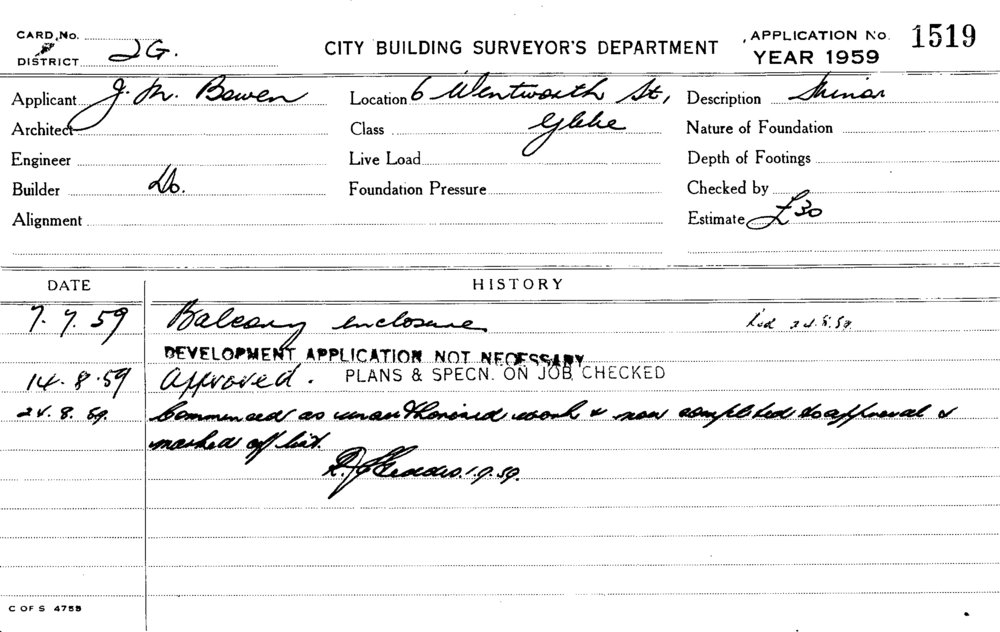 CARD No. CITY BUILDING SURVEYOR'S DEPARTMENT APPLICATION No. 1519
DISTRICT 2G. YEAR 1959
Applicant J. M. Bowen Location 6 Wentworth St, Description Minor
Architect Class Glebe Nature of Foundation
Engineer Live Load Depth of Footings
Builder Do. Foundation Pressure Checked by
Alignment Estimate £30
DATE HISTORY
7.7.59 Balcony enclosure 24.8.59
DEVELOPMENT APPLICATION NOT NECESSARY
14.8.59 Approved. PLANS & SPECN. ON JOB CHECKED
24.8.59. Commenced as unauthorised work & now completed to approval &
marked off list.
R. J. Geddes. 1.9.59.
C OF S 4755